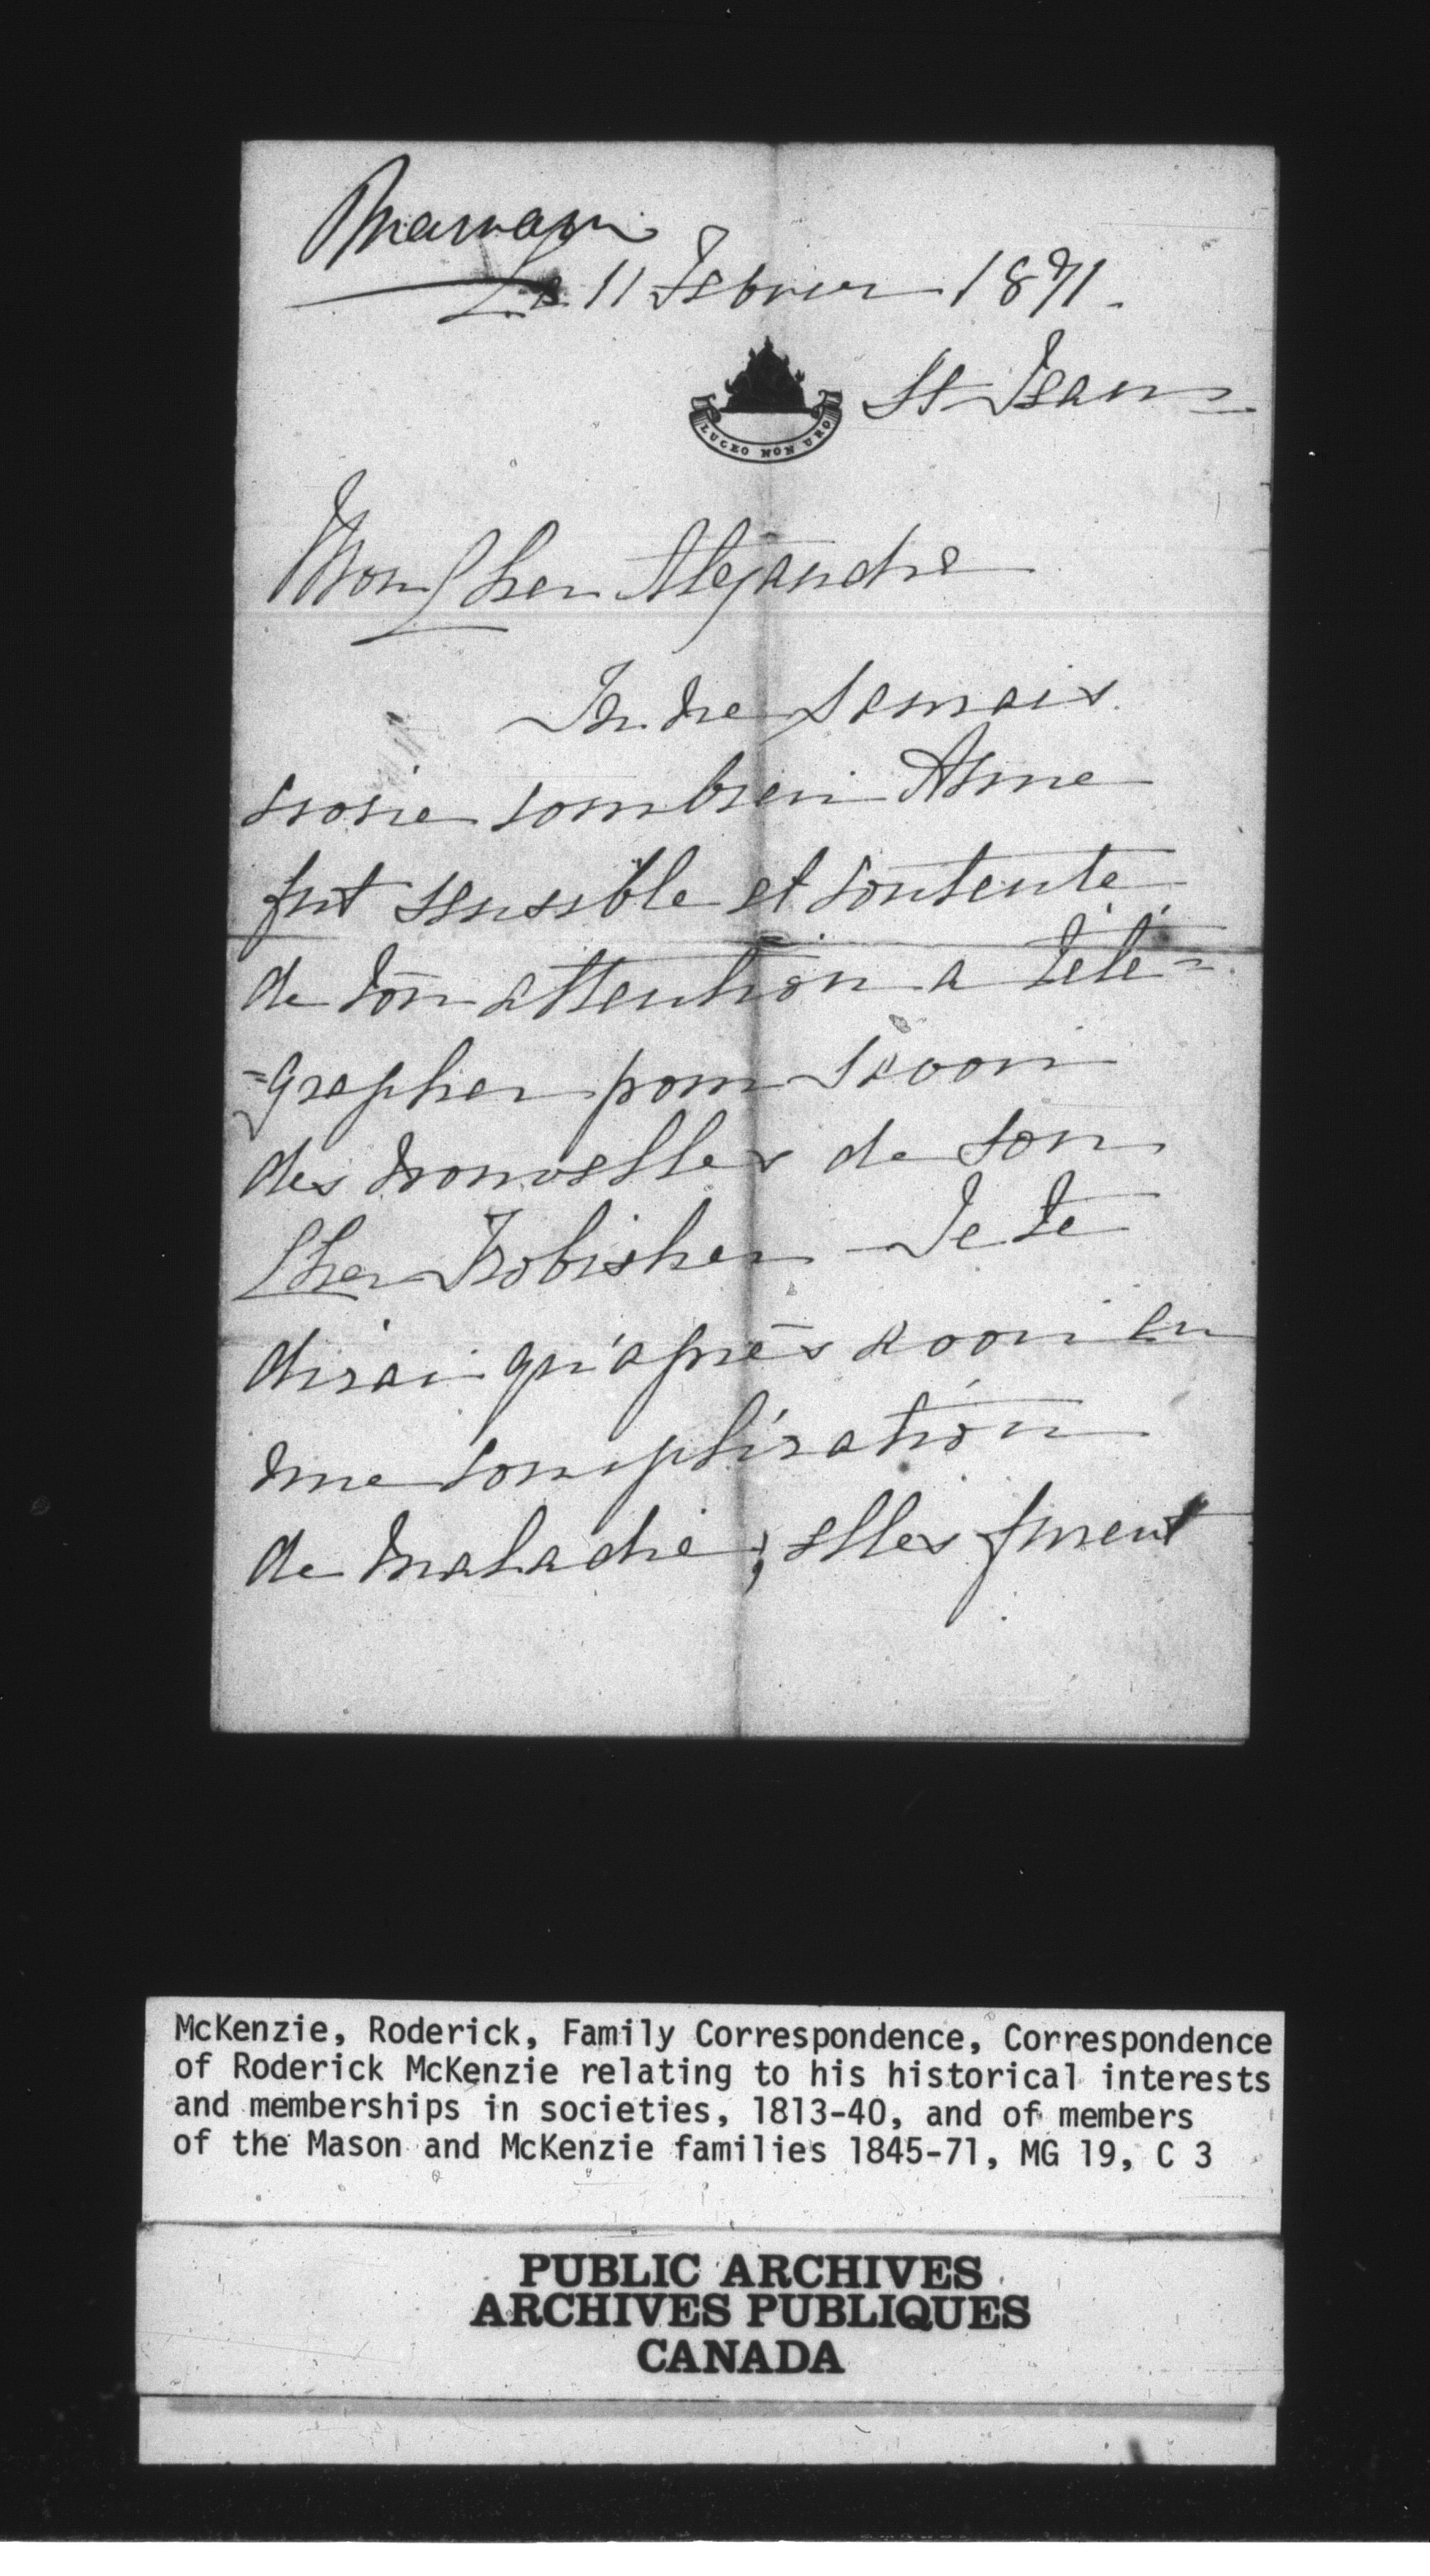 Maman
Le 11 Febrier 1871.
St Jean
LUCEO NON URO
Mon Cher Alexandre
Tu ne samais
croire combien Anne
fut sensible et contente
de ton attention a télé=
=grapher pour savoir
des nouvelles de son
Cher Frobisher — Je te
dirai qu'après avoir eu
une complication
de maladie ; elles furent
McKenzie, Roderick, Family Correspondence, Correspondence
of Roderick McKenzie relating to his historical interests
and memberships in societies, 1813-40, and of members
of the Mason and McKenzie families 1845-71, MG 19, C 3
PUBLIC ARCHIVES
ARCHIVES PUBLIQUES
CANADA